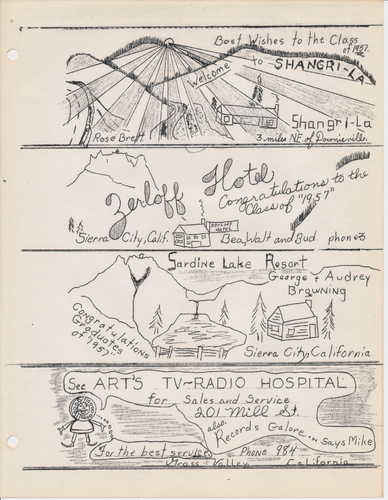 Best Wishes to the Class
of 1957
Welcome to SHANGRI-LA
Shangri-La
Rose Brett 3 miles NE. of Downieville.
Zerloff Hotel
Congratulations to the
Class of "1957"
ZERLOFF
HOTEL
Sierra City, Calif. Bea, Walt and Bud. phone
Sardine Lake Resort
George & Audrey
Browning
Congratulations
Graduates
of "1957"
Sierra City, California
See ART'S TV-RADIO HOSPITAL
for Sales and Service
201 Mill St.
also
Records Galore... says Mike
For the best service Phone 984
Grass Valley, California